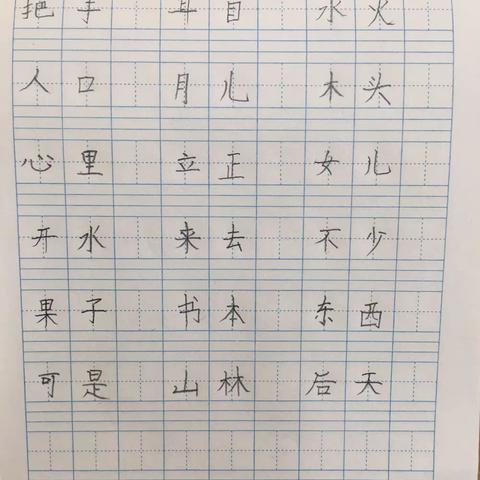 把手 耳目 水火
人口 月儿 木头
心里 立正 女儿
开水 来去 不少
果子 书本 东西
可是 山林 后天